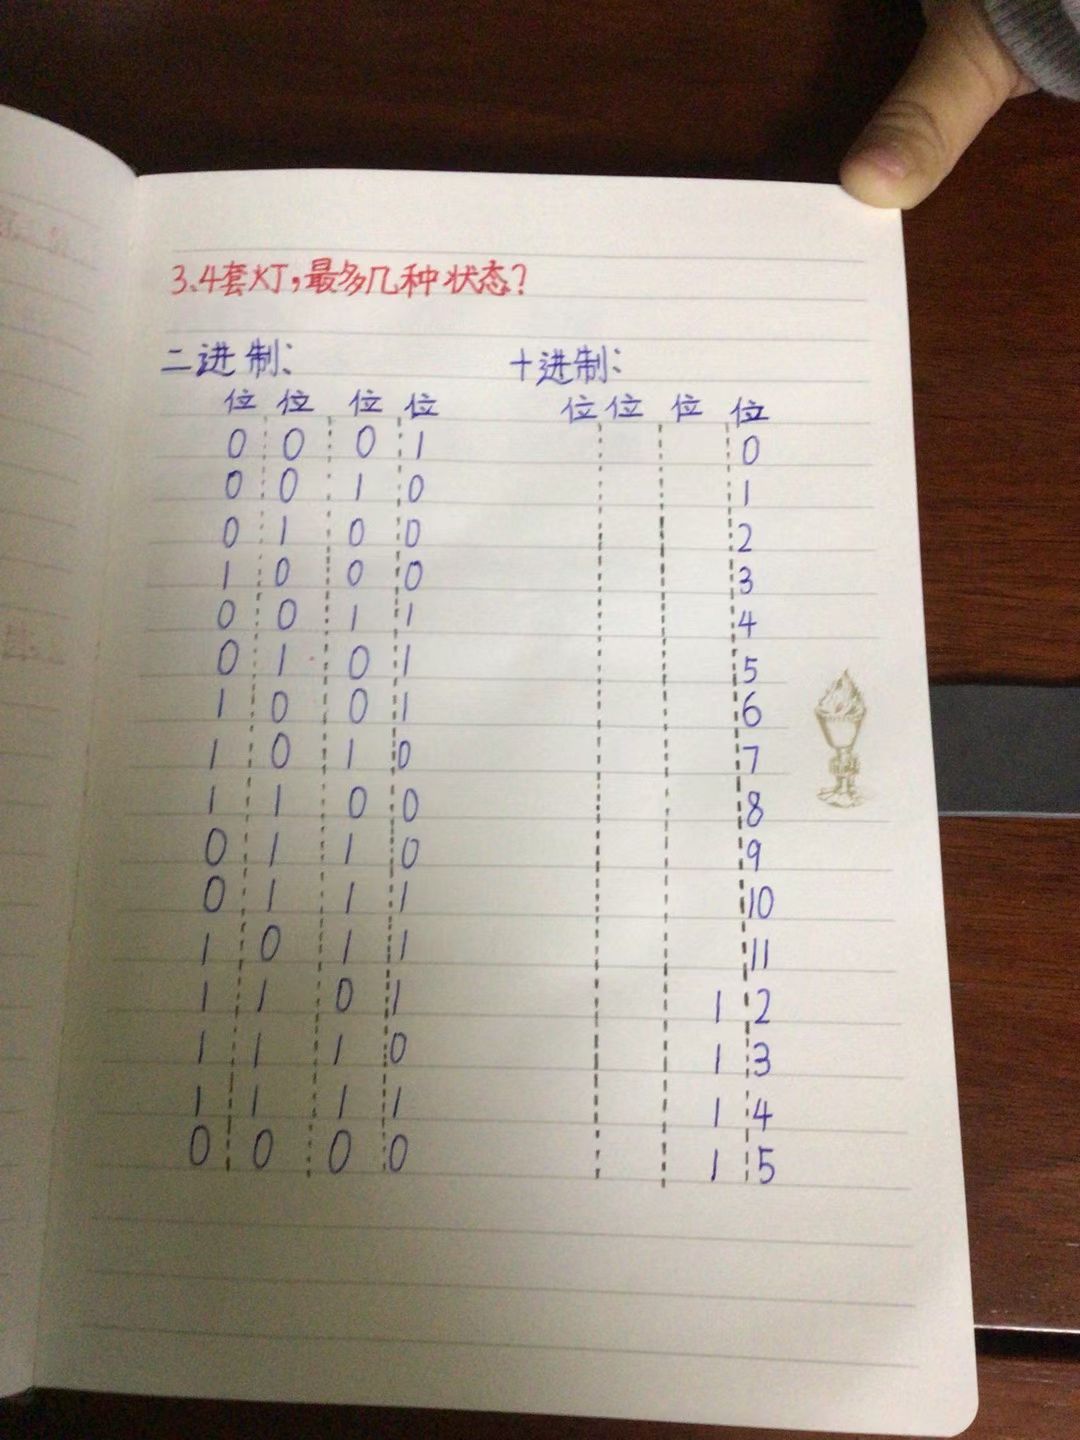 3、4套灯，最多几种状态？
二进制： 十进制：
位 位 位 位 位 位 位 位
0 0 0 1 0
0 0 1 0 1
0 1 0 0 2
1 0 0 0 3
0 0 1 1 4
0 1 0 1 5
1 0 0 1 6
1 0 1 0 7
1 1 0 0 8
0 1 1 0 9
0 1 1 1 10
1 0 1 1 11
1 1 0 1 1 2
1 1 1 0 1 3
1 1 1 1 1 4
0 0 0 0 1 5